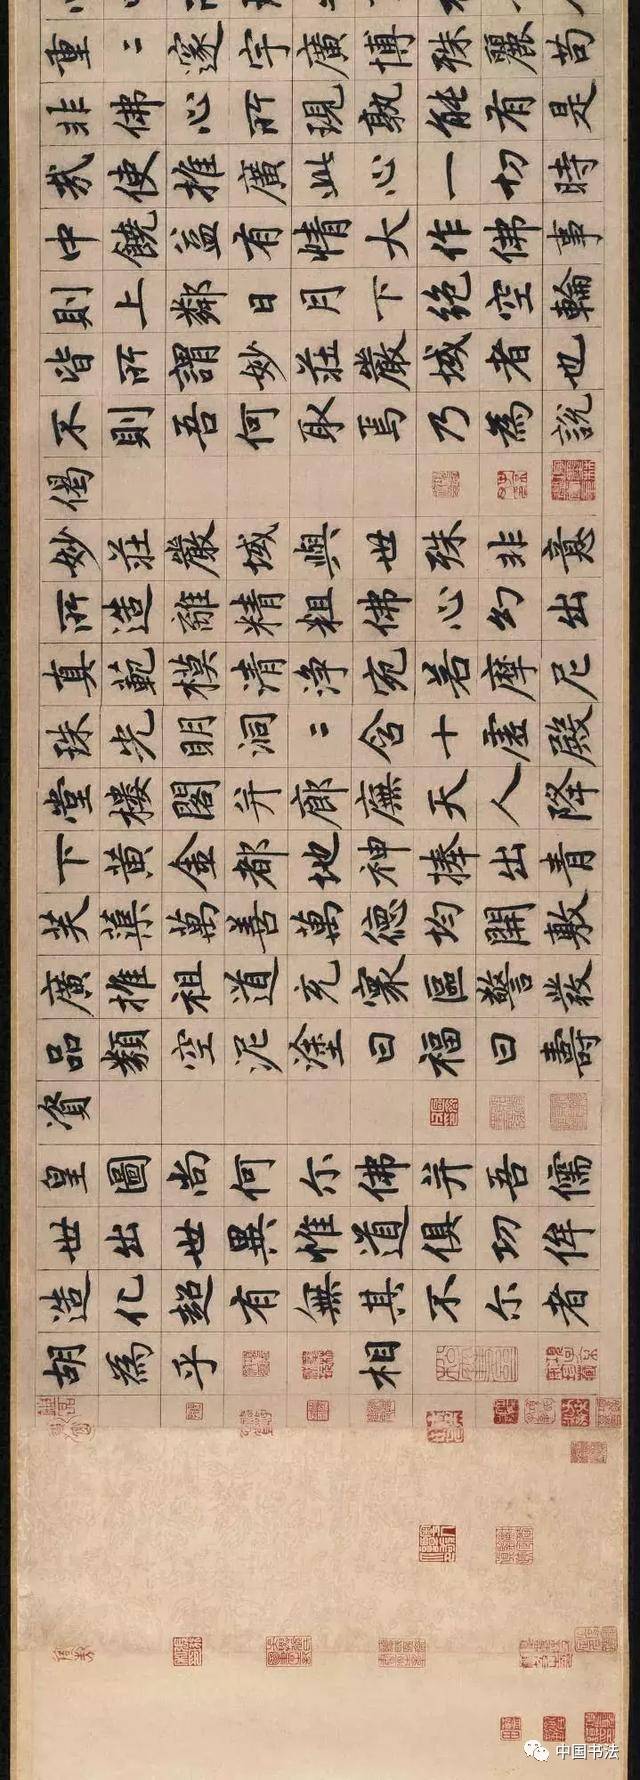 重二邃宇廣博殊麗苟
非佛心所現孰能有是
哉使推廣此心一切時
中饒益有情大作佛事
則上鄰日月下絶空輪
皆所謂妙莊嚴域者也
不則吾何取焉乃為說
偈
妙莊嚴域與世殊非意
所造離精粗佛心幻出
真範模清淨宛若摩尼
珠光明洞二含十虛殿
堂樓閣并廊廡天人降
下黃金都地神捧出青
芙蕖萬善萬德均開敷
廣推祖道充寰區警
品類空泥塗曰福曰壽
資
皇圖尚何尔佛并吾儒
世出世異惟道俱功侔
造化超有無其不尔者
胡為乎相
中国书法